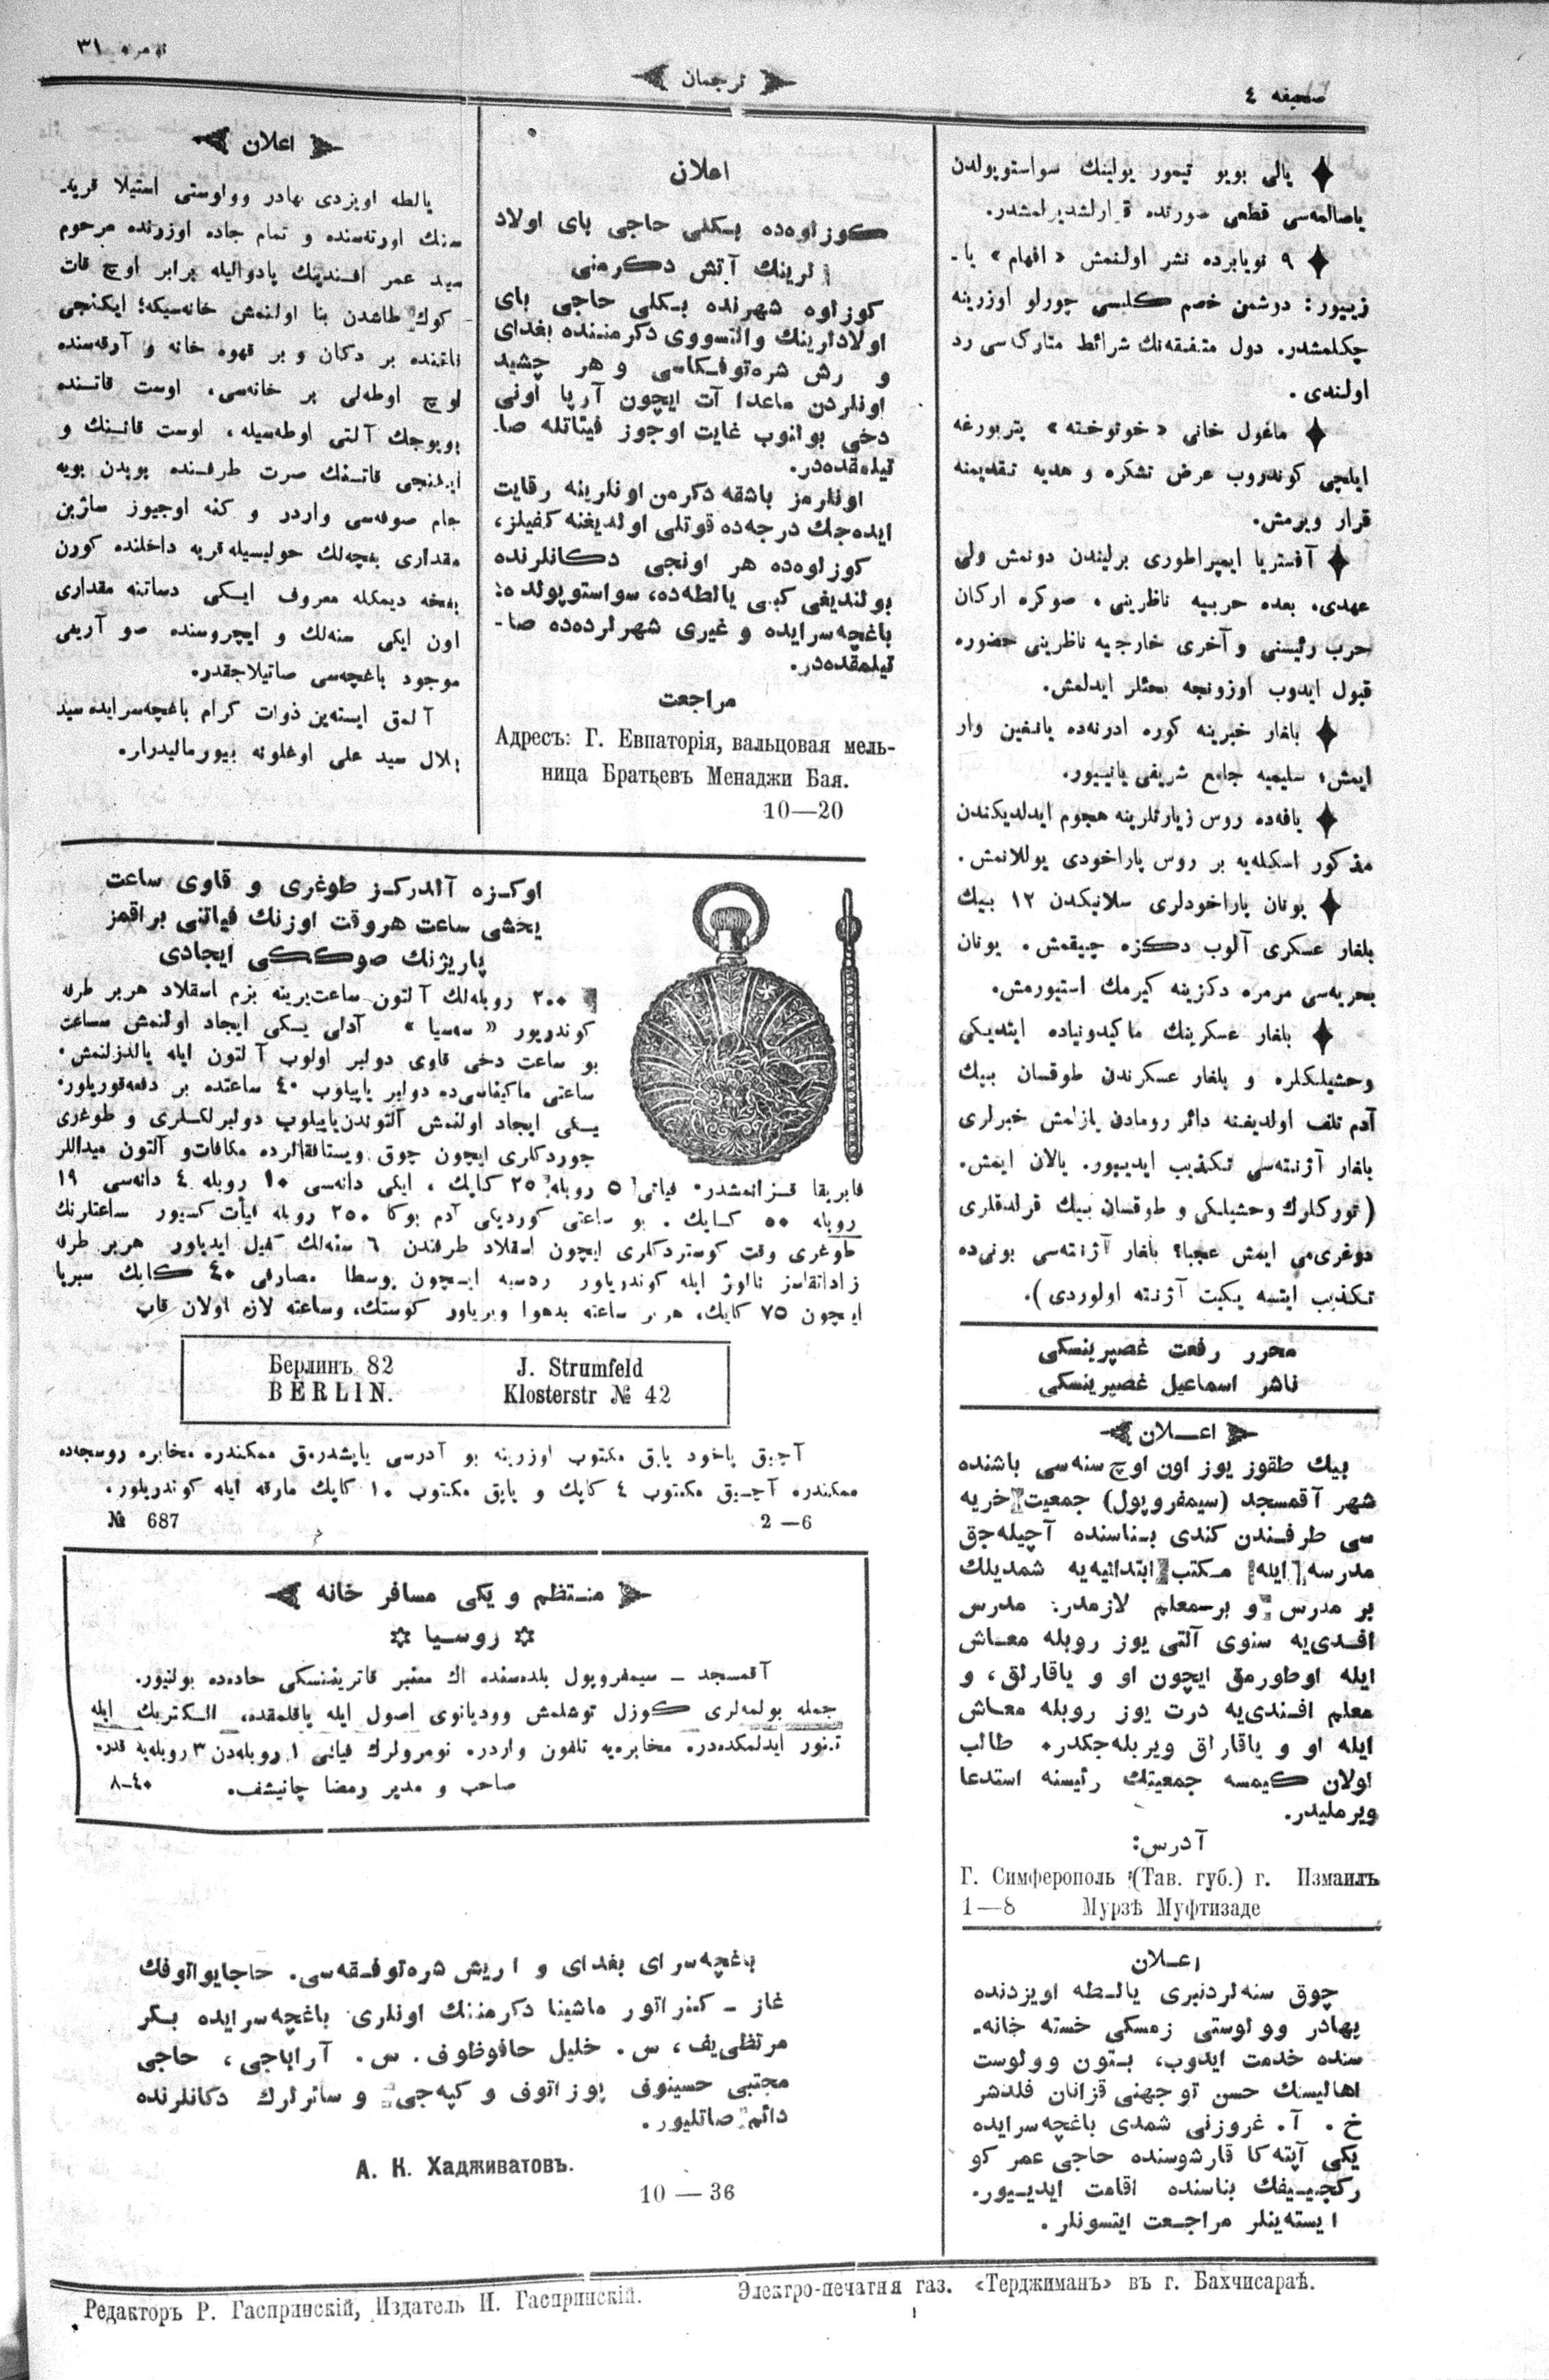 صحيفه ٤
ترجمان
نمره ٣١
يالى بويو تيمور يولينك سواستوپولدن
ياصالمه‌سى قطعى صورتده قرارلشديرلمشدر.
٩ نويابرده نشر اولنمش «افهام» يا-
زييور: دوشمن خصم كلبسى چورلو اوزرينه
چكلمشدر. دول متفقه‌نك شرائط متاركه‌سى رد
اولندى.
ماغول خانى «خوتوخته» پتربورغه
ايلچى كوندروب عرض تشكره و هديه تقديمنه
قرار ويرمش.
آفستريا ايمپراطورى برليندن دونمش ولى
عهدى، بعده حربيه ناظرينى، صوكره اركان
حرب رئيسنى و آخرى خارجيه ناظرينى حضوره
قبول ايدوب اوزونجه بحثلر ايدلمش.
بلغار خبرينه كوره ادرنه‌ده يانغين وار
ايمش؛ سليميه جامع شريفى يانييور.
يافه‌ده روس زيارتلرينه هجوم ايدلديكندن
مذكور اسكله‌يه بر روس پاراخودى يوللانمش.
يونان پاراخودلرى سلانيكدن ١٢ بيك
بلغار عسكرى آلوب دكزه چيقمش. يونان
بحريه‌سى مرمره دكزينه كيرمك استيورمش.
بلغار عسكرينك ماكيدونياده ايتديكى
وحشيلكلره و بلغار عسكرندن طوقسان بيك
آدم تلف اولديغنه دائر رومادن يازلمش خبرلرى
بلغار آژنته‌سى تكذيب ايدييور. يالان ايمش.
(توركلرك وحشيلكى و طوقسان بيك قرلدقلرى
دوغرى‌مى ايمش عجبا؟ بلغار آژنته‌سى بونى‌ده
تكذيب ايتسه يكيت آژنته اولوردى).
محرر رفعت غصپرينسكى
ناشر اسماعيل غصپرينسكى
اعلان
بيك طقوز يوز اون اوچ سنه‌سى باشنده
شهر آقمسجد (سيمفروپول) جمعيت خريه
سى طرفندن كندى بناسنده آچيله‌جق
مدرسه ايله مكتب ابتدائيه‌يه شمديلك
بر مدرس و بر معلم لازمدر: مدرس
افدى‌يه سنوى آلتى يوز روبله معاش
ايله اوطورمق ايچون او و ياقارلق، و
معلم افندى‌يه درت يوز روبله معاش
ايله او و ياقارلق ويريله‌جكدر. طالب
اولان كيمسه جمعيتك رئيسنه استدعا
ويرمليدر.
آدرس:
Г. Симферополь (Тав. губ.) г. Измаилъ
Мурзѣ Муфтизаде 1—8
اعلان
چوق سنه‌لردنبرى يالطه اويزدنده
بهادر وولوستى زمسكى خسته خانه-
سنده خدمت ايدوب، بتون وولوست
اهاليسنك حسن توجهنى قزانان فلدشر
خ. آ. غروزنى شمدى باغچه‌سرايده
يكى آپته‌كا قارشوسنده حاجى عمر كو
ركجييفك بناسنده اقامت ايدييور.
ايسته‌ينلر مراجعت ايتسونلر.
اعلان
كوزلوه‌ده بكلى حاجى باى اولاد
لرينك آتش دكرمنى
كوزلوه شهرنده بكلى حاجى باى
اولادلرينك والتسووى دكرمننده بغداى
و رش شره‌توفكاسى و هر چشيد
اونلردن ماعدا آت ايچون آرپا اونى
دخى بولنوب غايت اوجوز فيئاتله صا-
تيلمقده‌در.
اونلرمز باشقه دكرمن اونلرينه رقابت
ايده‌جك درجه‌ده قوتلى اولديغنه كفيلز،
كوزلوه‌ده هر اونجى دكانلرنده
بولنديغى كبى يالطه‌ده، سواستوپولده:
باغچه‌سرايده و غيرى شهرلرده‌ده صا-
تيلمقده‌در.
مراجعت
Адресъ: Г. Евпаторія, вальцовая мель-
ница Братьевъ Менаджи Бая.
10—20
اعلان
يالطه اويزدى بهادر وولوستى استيلا قريه-
سنك اورته‌سنده و تمام جاده اوزرنده مرحوم
سيد عمر افندينك يادواليله برابر اوچ قات
كوك طاشدن بنا اولنمش خانه‌سيكه؛ ايكنجى
قاتنده بر دكان و بر قهوه خانه و آرقه‌سنده
اوچ اوطه‌لى بر خانه‌سى، اوست قاتنده
بويوجك آلتى اوطه‌سيله، اوست قاتنك و
ايكنجى قاتنك صرت طرفنده بويدن بويه
جام صوفه‌سى واردر و كنه اوچيوز ساژين
مقدارى بغچه‌لك حوليسيله قريه داخلنده كورن
بغچه ديمكله معروف ايكى دساتنه مقدارى
اون ايكى سنه‌لك و ايچروسنده صو آريغى
موجود باغچه‌سى صاتيلاجقدر.
آلمق ايسته‌ين ذوات كرام باغچه‌سرايده سيد
بلال سيد على اوغلونه بيورماليدرلر.
اوكزه آلدركز طوغرى و قاوى ساعت
يخشى ساعت هروقت اوزنك فياتنى براقمز
پاريژنك صوككى ايجادى
٢٠٠ روبله‌لك آلتون ساعت يرينه بزم اسقلاد هربر طرفه
كوندريور «سه‌سيا» آدلى يكى ايجاد اولنمش ساعت
بو ساعت دخى قاوى دولبر اولوب آلتون ايله يالدزلنمش.
ساعتى ماكيفاسى‌ده دولبر ياپيلوب ٤٠ ساعتده بر دفعه قوريلور.
يكى ايجاد اولنمش آلتوندن ياپيلوب دولبرلكلرى و طوغرى
جوردكلرى ايچون چوق ويستافقالرده مكافات و آلتون ميداللر
فابريقا قزانمشدر. فياتى ٥ روبله ٢٥ كاپك، ايكى دانه‌سى ١٠ روبله ٤ دانه‌سى ١٩
روبله ٥٠ كاپك. بو ساعتى كورديكى آدم بوكا ٢٥٠ روبله فيأت كسيور ساعتلرنك
طوغرى وقت كوستردكلرى ايچون اسقلاد طرفندن ٦ سنه‌لك كفيل ايديلور هربر طرفه
زاداتقاسز نالوژ ايله كوندريلور روسيه ايچون پوسطا مصارفى ٤٠ كاپك سبريا
ايچون ٧٥ كاپك، هربر ساعته بدهوا ويريلور كوستك، وساعته لازم اولان قاپ
Берлинъ 82 J. Strumfeld
BERLIN. Klosterstr № 42
آچيق ياخود ياپق مكتوب اوزرينه بو آدرسى ياپشدرمق ممكندره مخابره روسجه‌ده
ممكندره آچيق مكتوب ٤ كاپك و ياپق مكتوب ١٠ كاپك مارقه ايله كوندريلور.
№ 687 2—6
منتظم و يكى مسافر خانه
روسيا
آقمسجد - سيمفروپول بلده‌سنده اك معتبر قاترينينسكى جاده‌ده بولنيور.
جمله بولمه‌لرى كوزل توشلمش وودياتوى اصول ايله ياقلمقده، الكتريك ايله
تنور ايدلمكده‌در. مخابره‌يه تلفون واردر. نومرولرك فياتى ١ روبله‌دن ٣ روبله‌يه قدر.
صاحب و مدير رمضا چانيشف. ٤٠-٨
باغچه‌سراى بغداى و اريش شره‌توفقه‌سى. حاجايواتوفك
غاز - كنراتور ماشينا دكرمننك اونلرى باغچه‌سرايده بكر
مرتظى‌يف، س. خليل حافوظوف. س. آراباجى، حاجى
مجتبى حسينوف پوزاتوف و كپه‌جى و سائرلرك دكانلرنده
دائم صاتليور.
А. К. Хадживатовъ.
10—36
Редакторъ Р. Гаспринскій, Издатель И. Гаспринскій. Электро-печатня газ. «Терджиманъ» въ г. Бахчисараѣ.